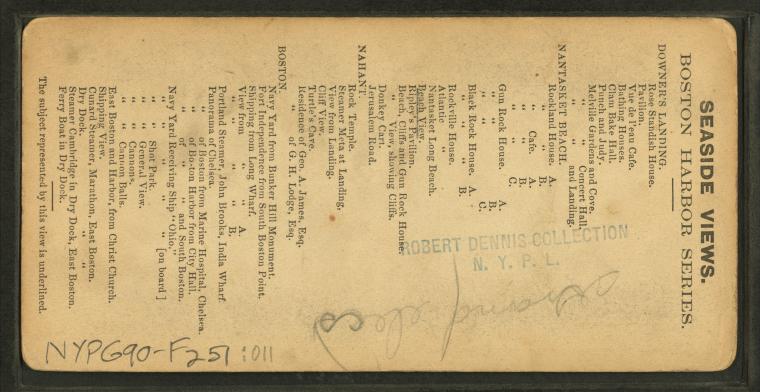 SEASIDE VIEWS.
BOSTON HARBOR SERIES.
DOWNER'S LANDING.
Rose Standish House.
Pavilion.
Vue de l'eau Cafe.
Bathing Houses.
Clam Bake Hall.
Punch and Judy.
Melville Gardens and Cove.
" " Concert Hall.
" " and Landing.
NANTASKET BEACH.
Rockland House. A.
" " B.
" Cafe. A.
" " B.
" " C.
Gun Rock House. A.
" " B.
" " C.
Black Rock House. A.
" " B.
Rockville House.
Atlantic "
Nantasket Long Beach.
Beach View.
Ripley's Pavilion.
Beach, Cliffs and Gun Rock House.
" View, showing Cliffs.
Donkey Cart.
Jerusalem Road.
NAHANT.
Rock Temple.
Steamer Meta at Landing.
View from Landing.
Cliff View.
Turtle's Cave.
Residence of Geo. A. James, Esq.
" of G. H. Lodge, Esq.
BOSTON.
Navy Yard from Bunker Hill Monument.
Fort Independence from South Boston Point.
Shipping from Long Wharf.
View from " " A.
" " " " B.
Portland Steamer, John Brooks, India Wharf
Panorama of Chelsea.
" of Boston from Marine Hospital, Chelsea.
" of Boston Harbor from City Hall.
" of " " and South Boston.
Navy Yard Receiving Ship "Ohio."
" " " " " [on board]
" " Shot Park.
" " General View.
" " Cannons.
" " Cannon Balls.
East Boston and Harbor, from Christ Church.
Shipping View.
Cunard Steamer, Marathon, East Boston.
Dry Dock, "
Steamer Cambridge in Dry Dock, East Boston.
Ferry Boat in Dry Dock.
The subject represented by this view is underlined.
ROBERT DENNIS COLLECTION
N. Y. P. L.
NYPG90-F251:011